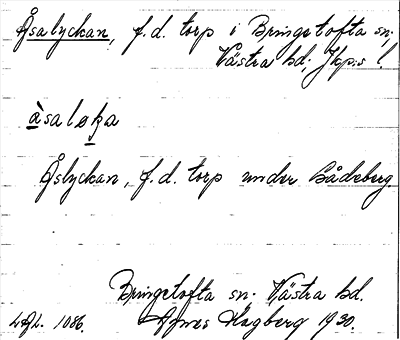 Åsalyckan, f.d. torp i Bringetofta sn;
Västra hd; Jkp:s l
àsaløka
Åslyckan, f.d. torp under Bådeberg
Bringetofta sn. Västra hd.
LAL. 1086. Agnes Hagberg 1930.